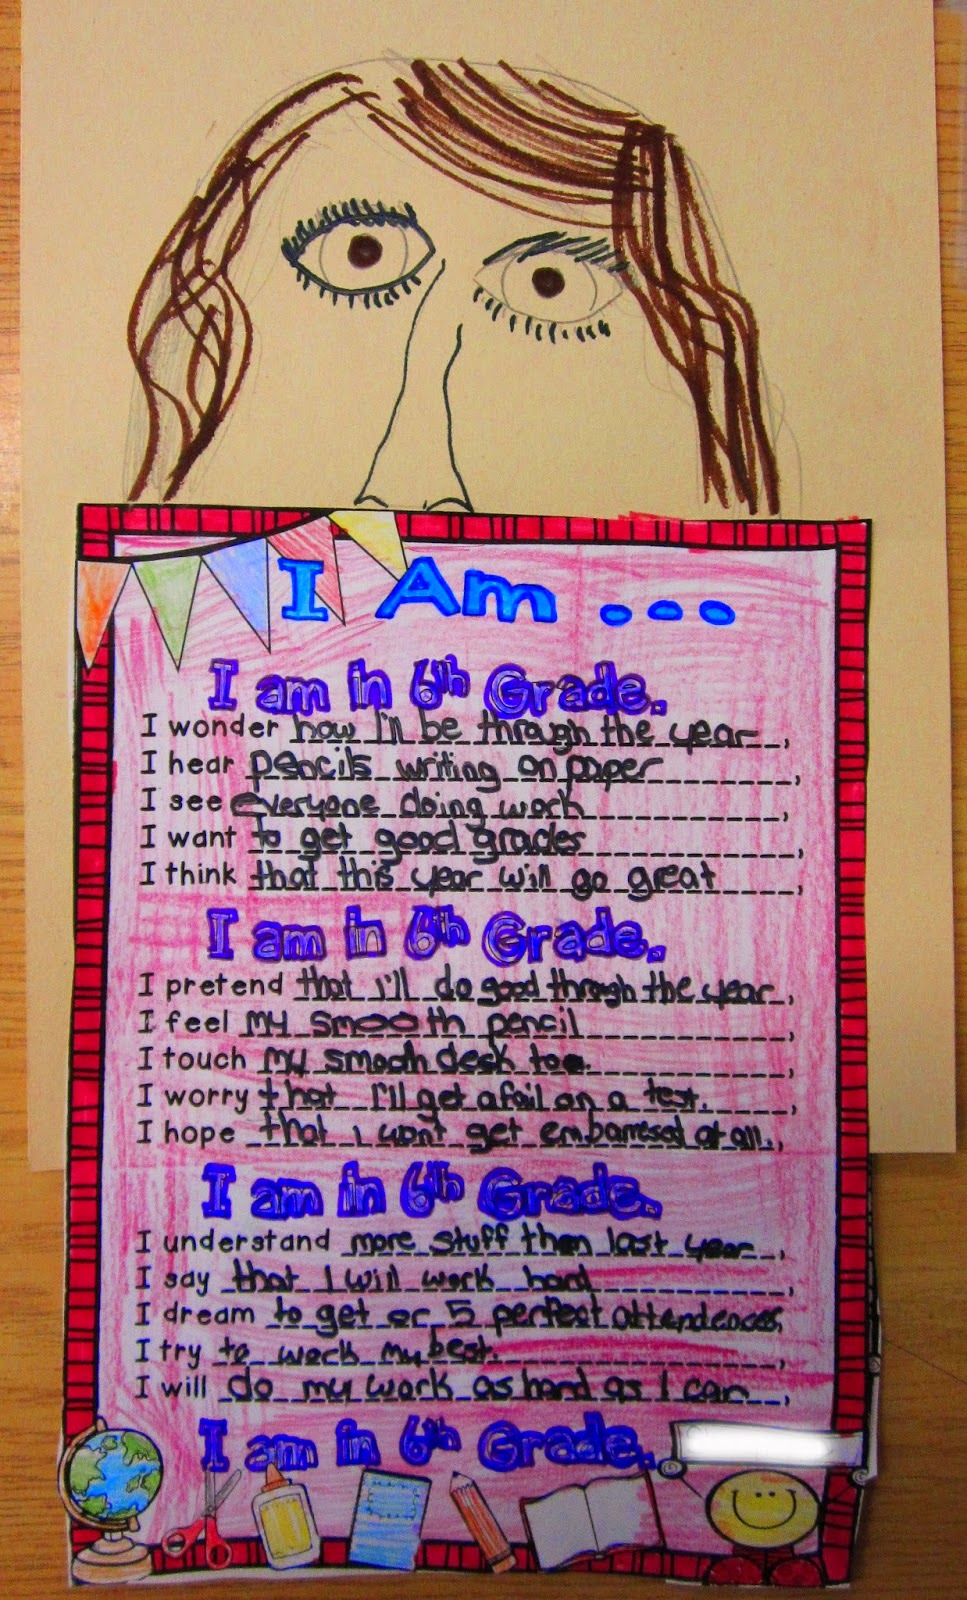 I Am ...
I am in 6th Grade.
I wonder how I'll be through the year,
I hear pencils writing on paper,
I see everyone doing work,
I want to get good grades,
I think that this year will go great,
I am in 6th Grade.
I pretend that I'll do good through the year,
I feel my smooth pencil,
I touch my smooth desk too.,
I worry that I'll get a fail on a test.,
I hope that I won't get embarresed at all.,
I am in 6th Grade.
I understand more stuff then last year,
I say that I will work hard,
I dream to get 5 perfect attendences,
I try to work my best.,
I will do my work as hard as I can,
I am in 6th Grade.